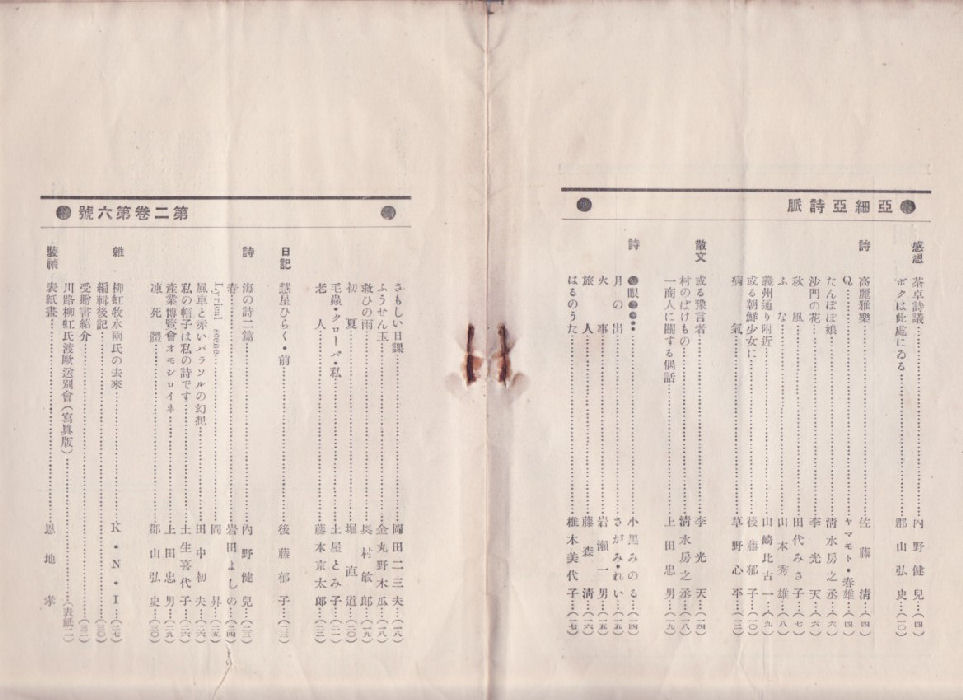 亞細亞詩脈
感想
茶卓詩議 内野健兒 (四)
ボクは此處にゐる 郡山弘史 (一〇)
詩
高麗雅樂 佐藤清 (四)
Q ヤマモト・春雄 (四)
たんぽぽ娘 清水房之丞 (六)
沙門の花 李光天 (六)
秋風 田代みさ子 (七)
ふな 山本秀雄 (八)
義州通り附近 山崎比古一 (九)
或る朝鮮少女に 後藤郁子 (一〇)
病氣 草野心平 (一二)
散文
或る豫言者 李光天 (一四)
村のばけもの 清水房之丞 (一八)
一商人に關する偶話 上田忠男 (一九)
詩
●眼●●●● 小黒みのる (一四)
月の出 さがみ・れい (一五)
火事 岩瀬一男 (一五)
旅人 藤森清 (一六)
はるのうた 椎木美代子 (一七)
第二卷第六號
さもしい日課 岡田二三夫 (一八)
ふうせん玉 金丸野木瓜 (一八)
救ひの雨 長村敏郎 (一九)
初夏 堀直道 (二〇)
毛蟲・クローバ・私 土屋とみ子 (二一)
老人 藤本京太郎 (二二)
日記
彗星ひらく・前 後藤郁子 (二三)
詩
海の詩二篇 内野健兒 (二三)
春 岩田よしの (二四)
岡昇 (二五)
風車と赤いパラソルの幻想 田中初夫 (二六)
私の帽子は私の詩です 土生喜代子 (二六)
産業博覽會オモシロイネ 上田忠男 (二九)
凍死體 郡山弘史 (三〇)
雜
柳虹牧水兩氏の去來 K・N・I (二七)
編輯後記 (三〇)
受贈書紹介 (三二)
川路柳虹氏渡歐送別會(寫眞版) (表紙二)
裝幀
表紙畫 恩地孝